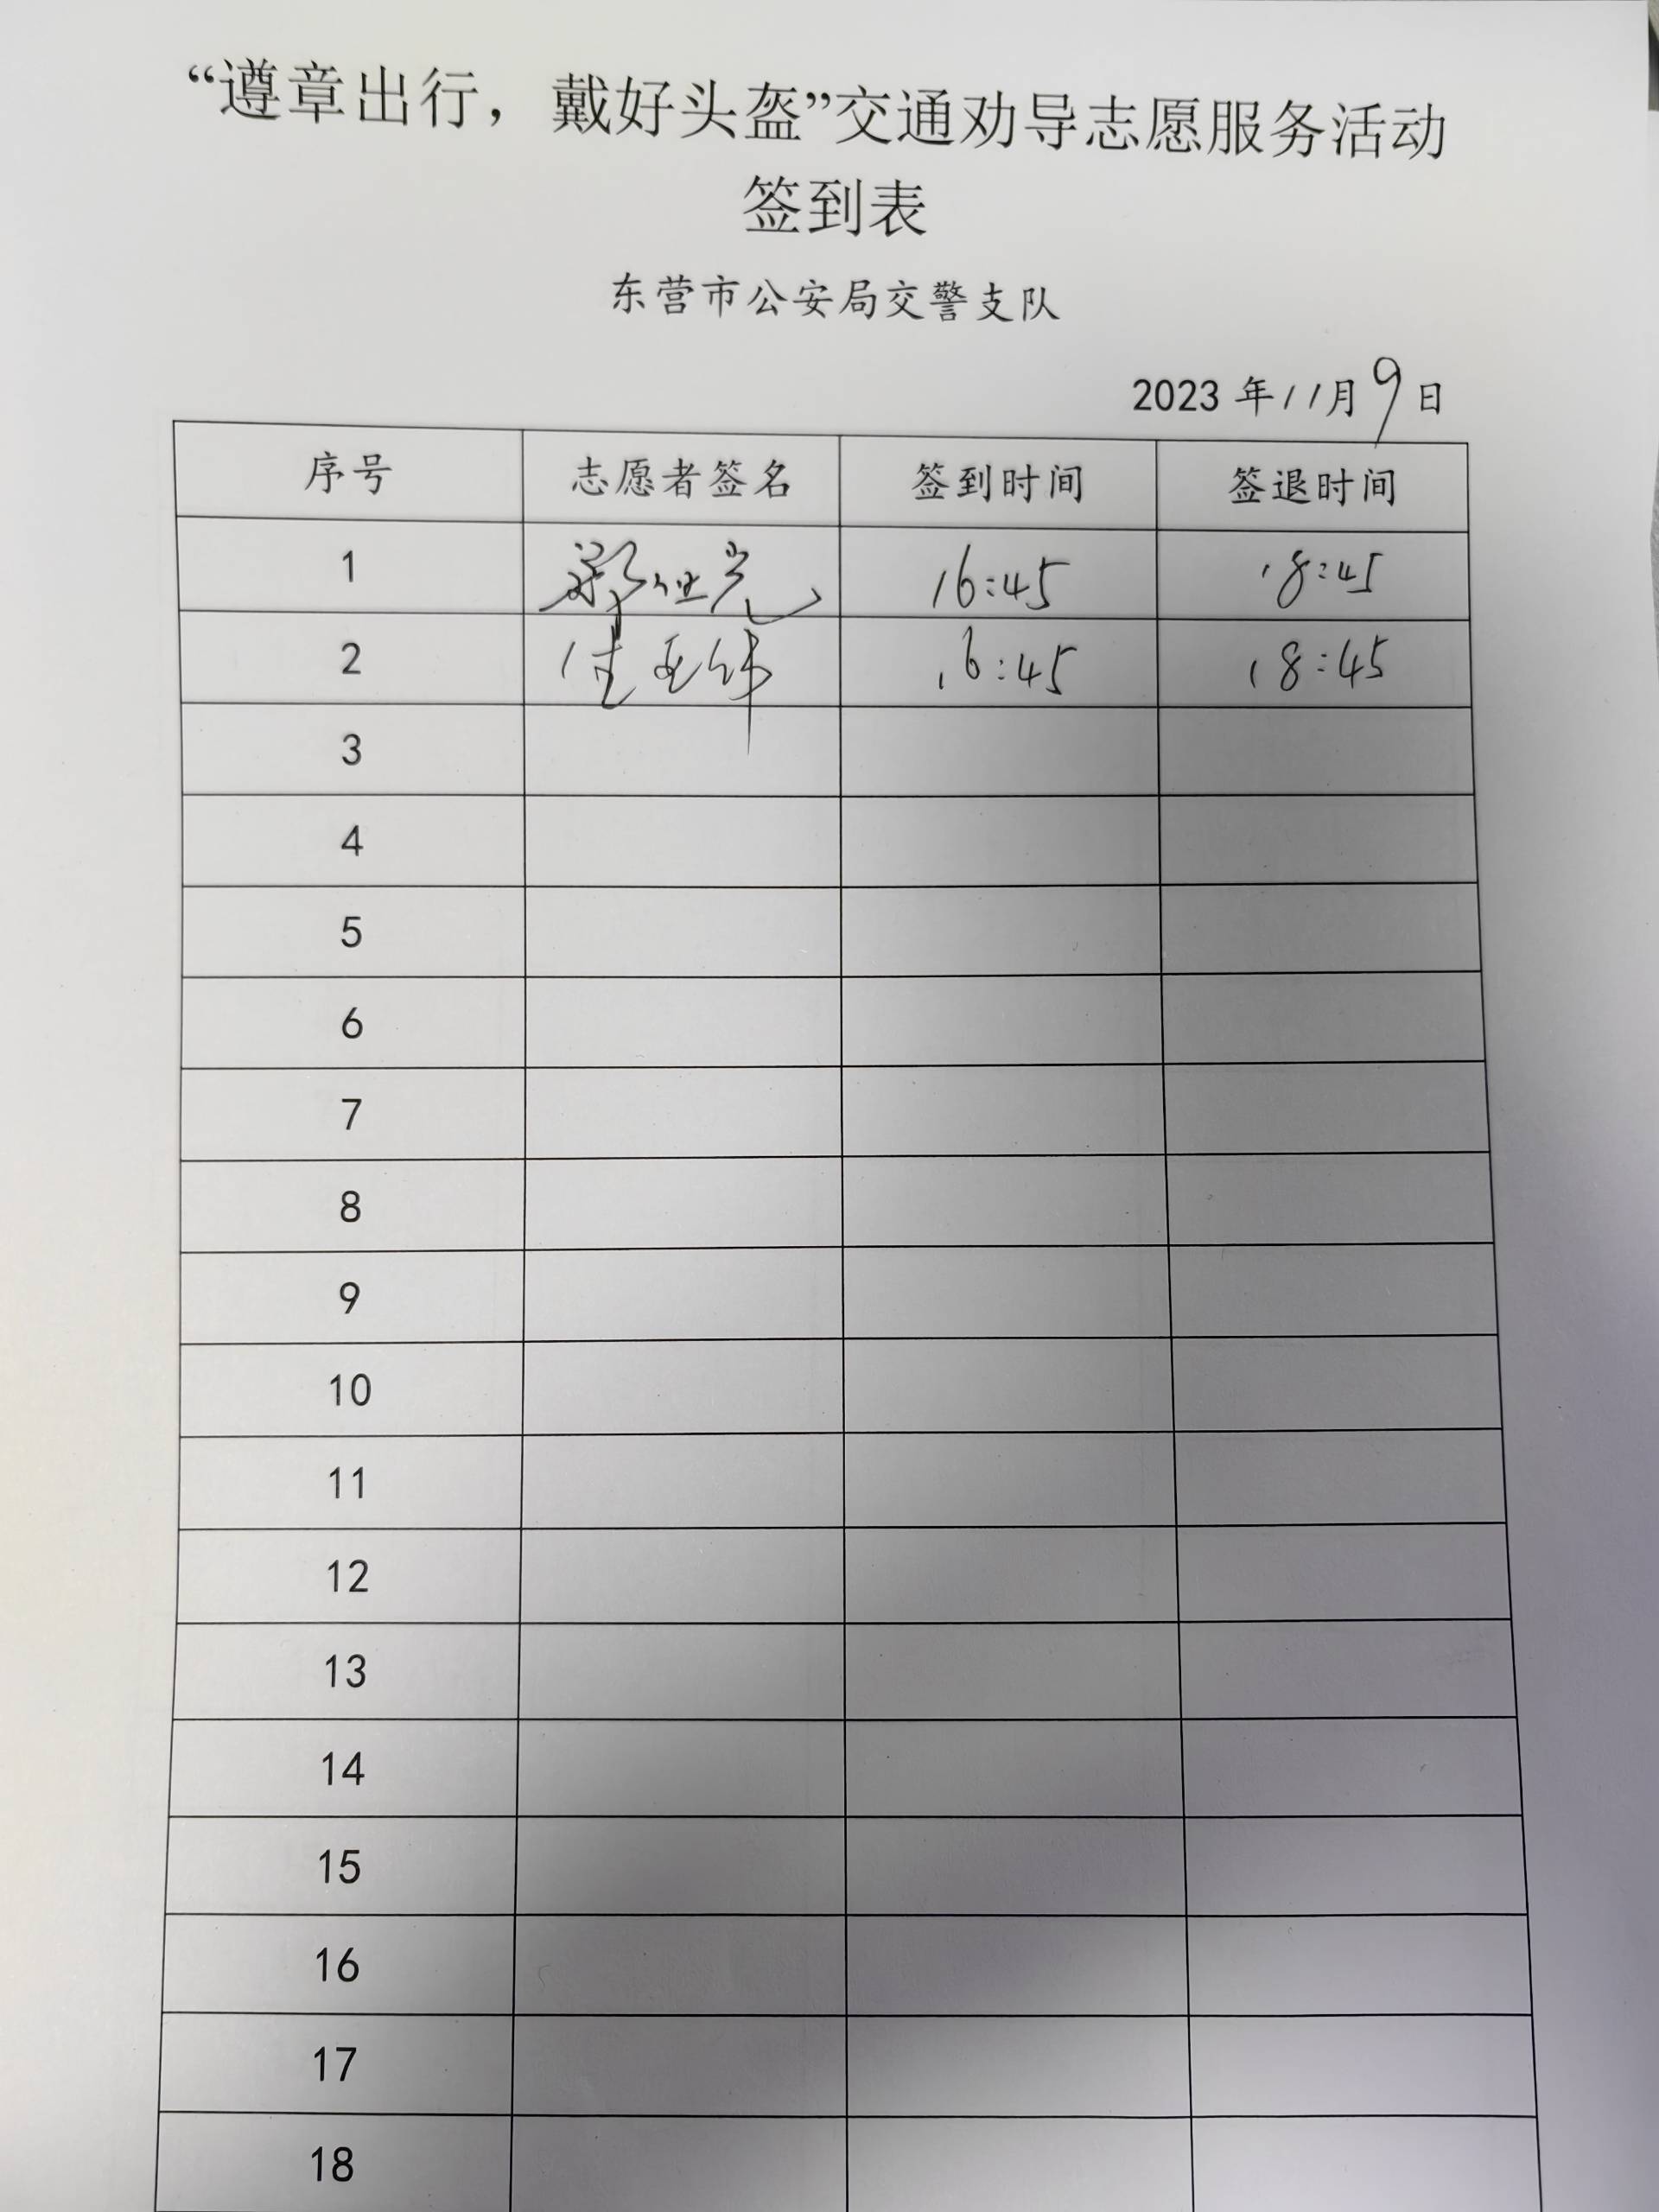 “遵章出行，戴好头盔”交通劝导志愿服务活动
签到表
东营市公安局交警支队
2023 年 11 月 9 日
序号 志愿者签名 签到时间 签退时间
1 16:45 18:45
2 16:45 18:45
3
4
5
6
7
8
9
10
11
12
13
14
15
16
17
18